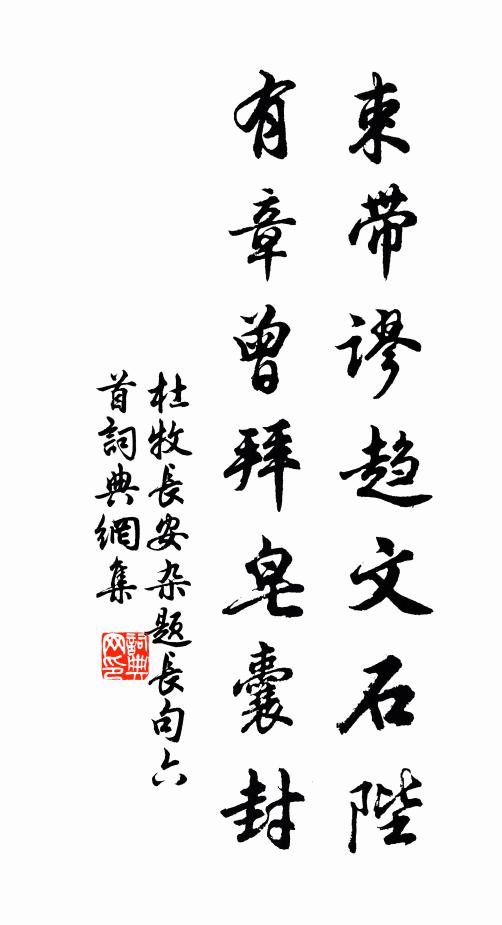 束带谬趋文石陛
有章曾拜皂囊封
杜牧長安杂题長句六
首詞典網集
詞典
网印